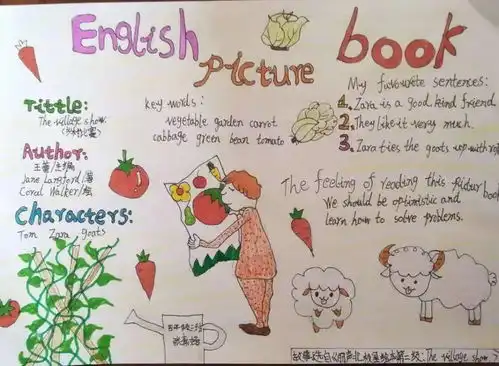 English
Picture
book
Tittle:
The village show
Author:
Jane Langford/著
Coral Walker/绘
Characters:
Tom Zara goats
key words:
vegetable garden carrot
cabbage green bean tomato
My favourite sentences:
1. Zara is a good kind friend.
2. They like it very much.
3. Zara ties the goats up with
The feeling of reading this pictur book
We should be optimistic and
learn how to solve problems.
The village show